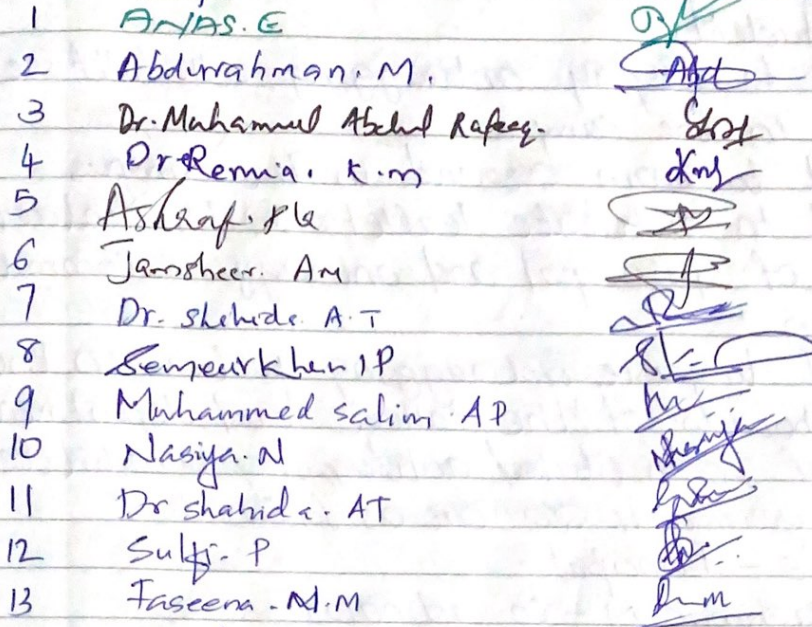 1 ANAS. E
2 Abdurrahman. M.
3 Dr. Muhammed Abdul Rafeeq.
4 Dr Remia. K.m
5 Ashraf. P K
6 Jamsheer. AM
7 Dr. Shahida A.T
8 Sameerkhan P
9 Muhammed salim AP
10 Nasiya. N
11 Dr shahida. AT
12 P
13 Faseena. N.M